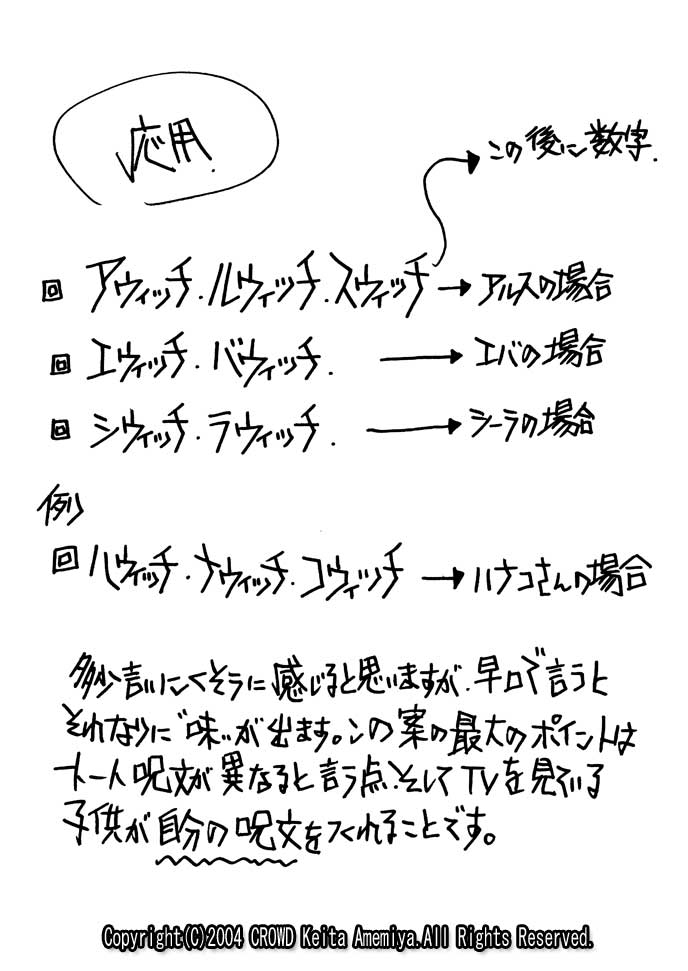 応用.
この後に数字.
回 アウィッチ.ルウィッチ.スウィッチ → アルスの場合
回 エウィッチ.バウィッチ. → エバの場合
回 シウィッチ.ラウィッチ. → シーラの場合
例
回 ハウィッチ.ナウィッチ.コウィッチ → ハナコさんの場合
多少言いにくそうに感じると思いますが.早口で言うと
それなりに“味”が出ます。この案の最大のポイントは
一人一人呪文が異なると言う点.そしてTVを見ている
子供が自分の呪文をつくれることです。
Copyright(C)2004 CROWD Keita Amemiya.All Rights Reserved.